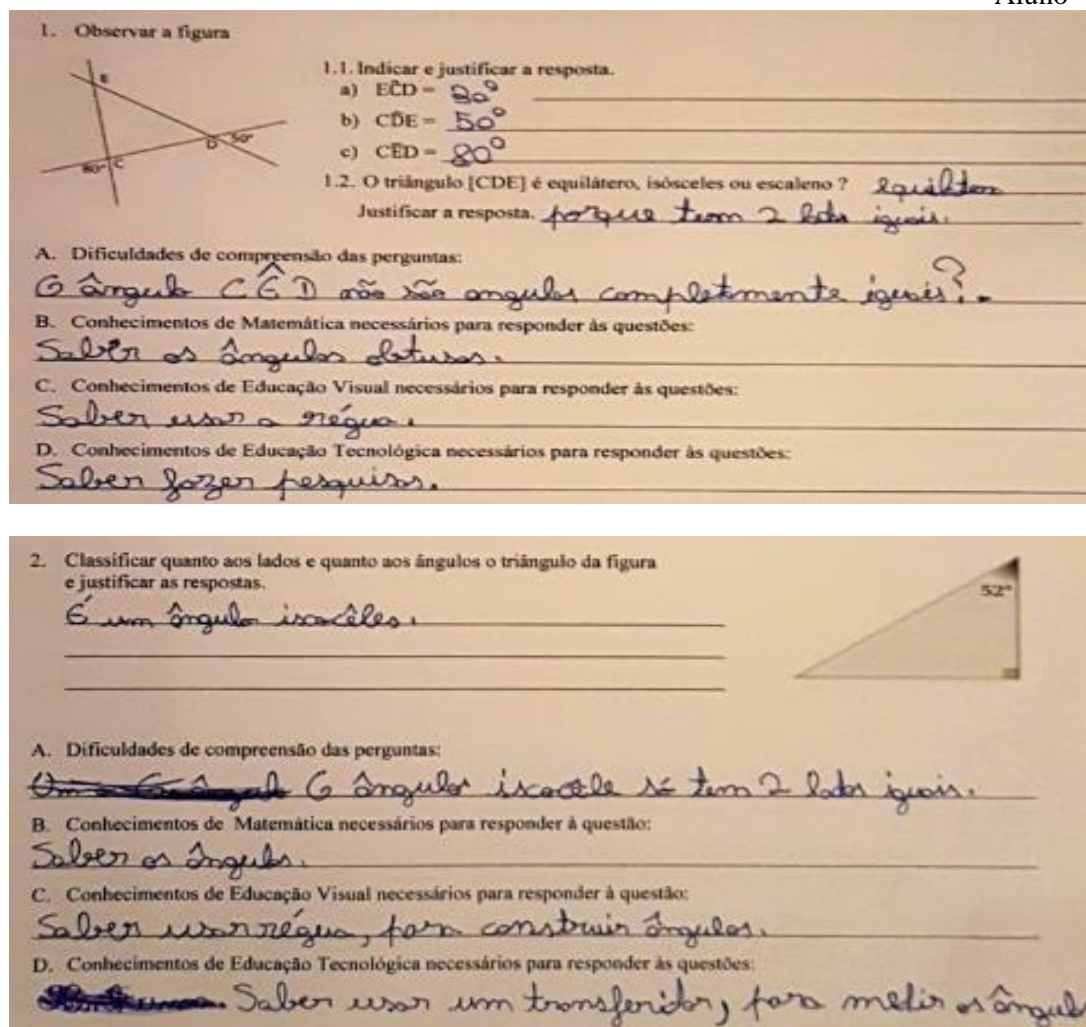 Aluno
1. Observar a figura
1.1. Indicar e justificar a resposta.
a) EĈD = 80°
b) CD̂E = 50°
c) CÊD = 80°
E
D
50°
80°
C
1.2. O triângulo [CDE] é equilátero, isósceles ou escaleno ? equilátero
Justificar a resposta. porque tem 2 lados iguais.
A. Dificuldades de compreensão das perguntas:
O ângulo CÊD não são angulos completamente iguais?.
B. Conhecimentos de Matemática necessários para responder às questões:
Saber os ângulos obtusos.
C. Conhecimentos de Educação Visual necessários para responder às questões:
Saber usar a régua.
D. Conhecimentos de Educação Tecnológica necessários para responder às questões:
Saber fazer pesquisas.
2. Classificar quanto aos lados e quanto aos ângulos o triângulo da figura
e justificar as respostas.
É um ângulo isocéles.
52°
A. Dificuldades de compreensão das perguntas:
O ângulo só tem 2 lados iguais.
B. Conhecimentos de Matemática necessários para responder à questão:
Saber os ângulos.
C. Conhecimentos de Educação Visual necessários para responder à questão:
Saber usar régua, para construir ângulos.
D. Conhecimentos de Educação Tecnológica necessários para responder às questões:
Saber usar um transferidor, para medir os ângul